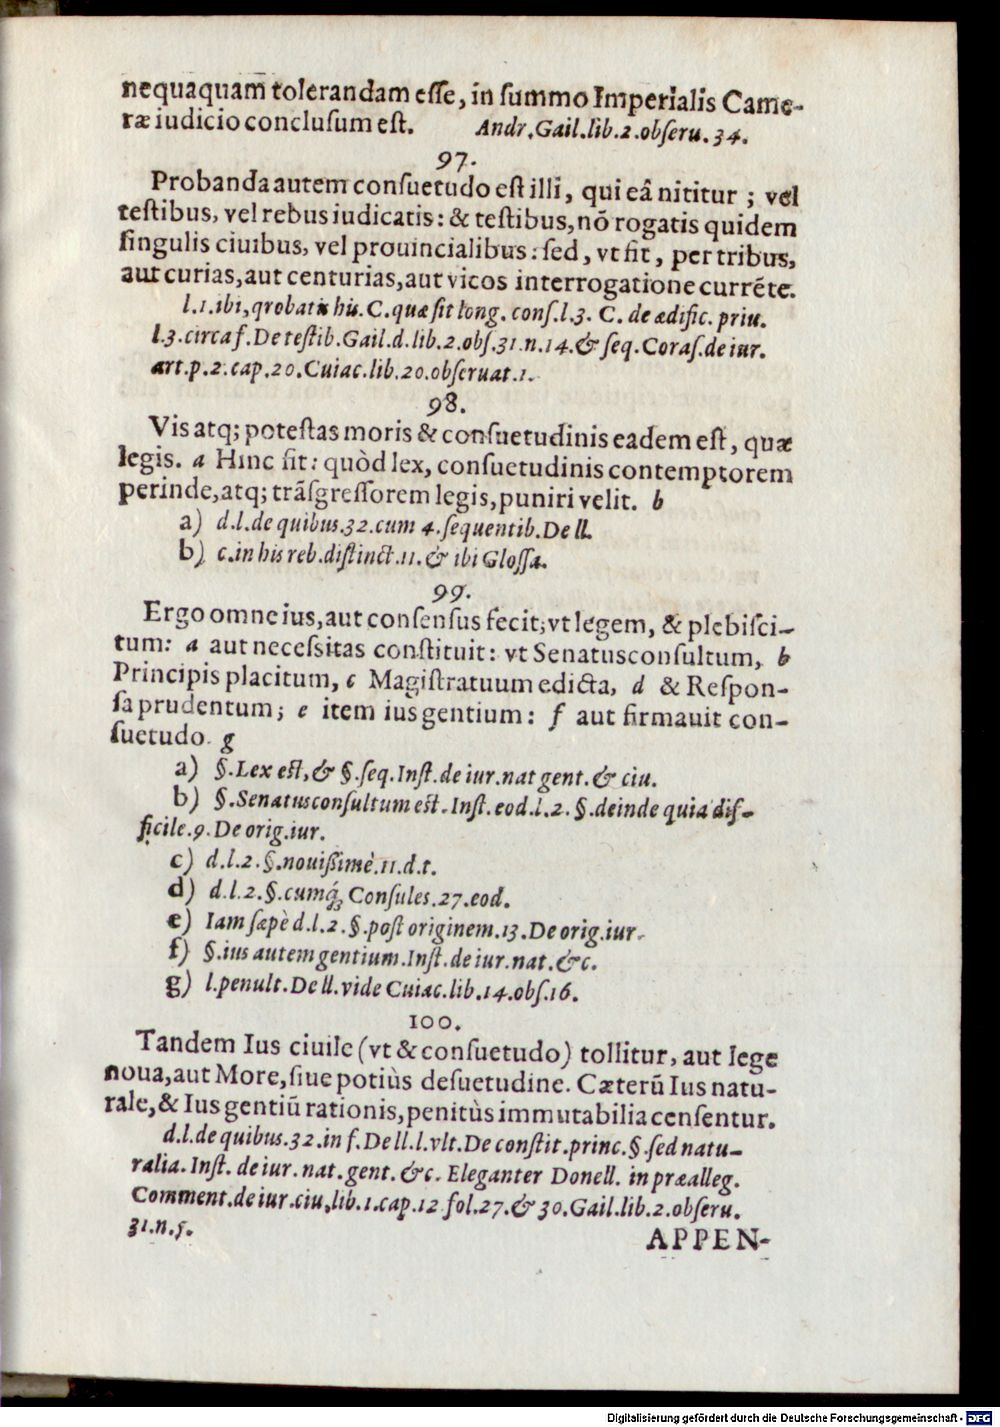 nequaquam tolerandam esse, in summo Imperialis Came-
ræ iudicio conclusum est. Andr. Gail. lib. 2. obseru. 34.
97.
Probanda autem consuetudo est illi, qui eâ nititur ; vel
testibus, vel rebus iudicatis: & testibus, nō rogatis quidem
singulis ciuibus, vel prouincialibus: sed, vt fit, per tribus,
aut curias, aut centurias, aut vicos interrogatione currēte.
l. 1. ibi, qrobatis his. C. quæ sit long. cons. l. 3. C. de ædific. priu.
l. 3. circa f. De testib. Gail. d. lib. 2. obs. 31. n. 14. & seq. Coras. de iur.
art. p. 2. cap. 20. Cuiac. lib. 20. obseruat. 1.
98.
Vis atq; potestas moris & consuetudinis eadem est, quæ
legis. a Hinc fit: quòd lex, consuetudinis contemptorem
perinde, atq; trāsgressorem legis, puniri velit. b
a) d. l. de quibus. 32. cum 4. sequentib. De ll.
b) c. in his reb. distinct. 11. & ibi Glossa.
99.
Ergo omne ius, aut consensus fecit; vt legem, & plebisci-
tum: a aut necessitas constituit: vt Senatusconsultum, b
Principis placitum, c Magistratuum edicta, d & Respon-
sa prudentum; e item ius gentium: f aut firmauit con-
suetudo. g
a) §. Lex est, & §. seq. Inst. de iur. nat gent. & ciu.
b) §. Senatusconsultum est. Inst. eod. l. 2. §. deinde quia dif-
ficile. 9. De orig. iur.
c) d. l. 2. §. nouissimè. 11. d. t.
d) d. l. 2. §. cumq́; Consules. 27. eod.
e) Iam sæpè d. l. 2. §. post originem. 13. De orig. iur.
f) §. ius autem gentium. Inst. de iur. nat. &c.
g) l. penult. De ll. vide Cuiac. lib. 14. obs. 16.
100.
Tandem Ius ciuile (vt & consuetudo) tollitur, aut lege
noua, aut More, siue potiùs desuetudine. Cæterū Ius natu-
rale, & Ius gentiū rationis, penitùs immutabilia censentur.
d. l. de quibus. 32. in f. De ll. l. vlt. De constit. princ. §. sed natu-
ralia. Inst. de iur. nat. gent. &c. Eleganter Donell. in præalleg.
Comment. de iur. ciu, lib. 1. cap. 12 fol. 27. & 30. Gail. lib. 2. obseru.
31. n. 5.
APPEN-
Digitalisierung gefördert durch die Deutsche Forschungsgemeinschaft - DFG